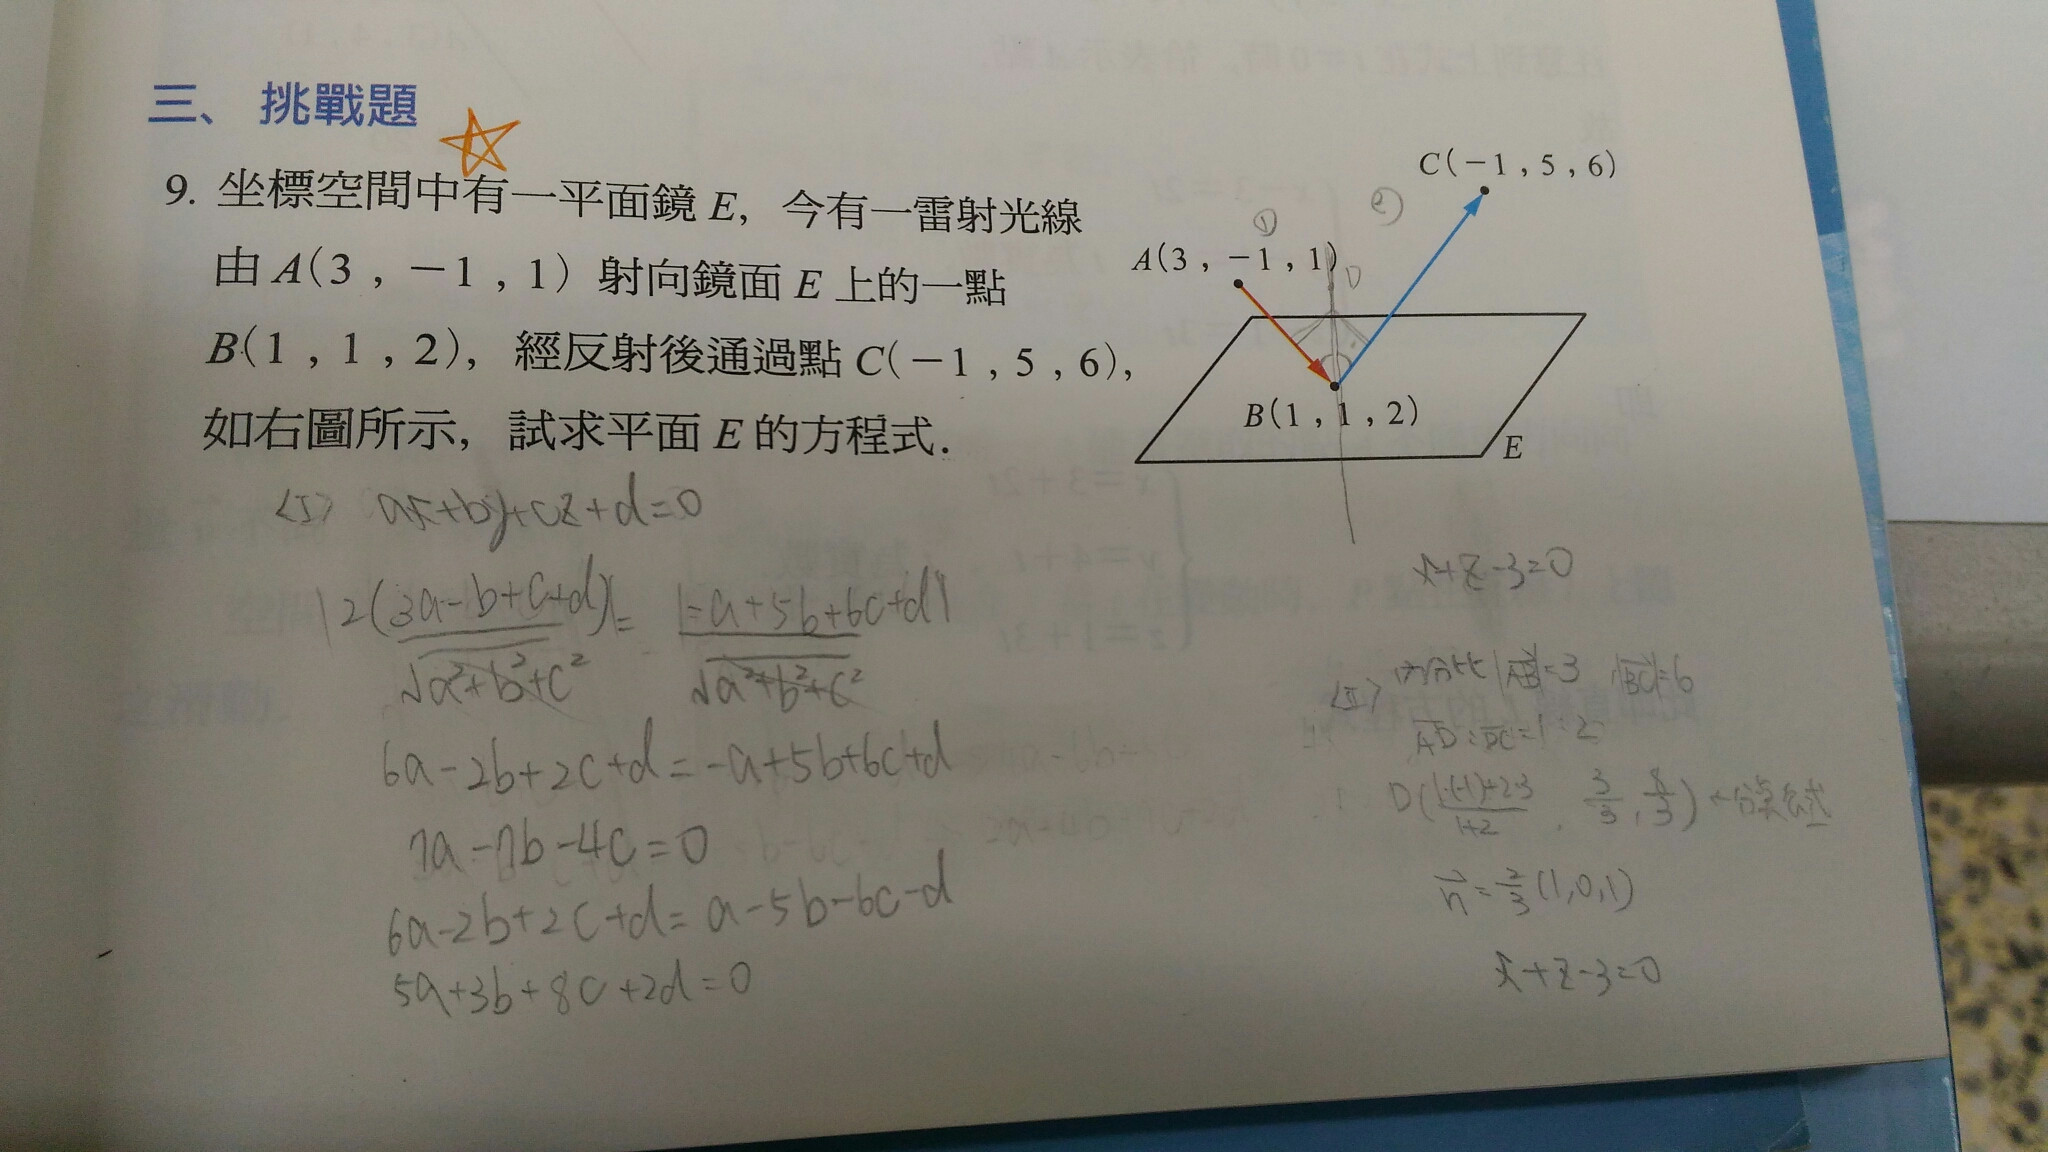 三、挑戰題
9. 坐標空間中有一平面鏡 E，今有一雷射光線
由 A(3 , −1 , 1) 射向鏡面 E 上的一點
B(1 , 1 , 2)，經反射後通過點 C(−1 , 5 , 6)，
如右圖所示，試求平面 E 的方程式.
C(−1 , 5 , 6)
① ②
A(3 , −1 , 1)
D
B(1 , 1 , 2)
E
<I> ax+by+cz+d=0
|2(3a-b+c+d)| / √a²+b²+c² = |-a+5b+6c+d| / √a²+b²+c²
6a-2b+2c+d=-a+5b+6c+d
7a-7b-4c=0
6a-2b+2c+d=a-5b-6c-d
5a+3b+8c+2d=0
x+z-3=0
<II> 內分比 |AB|=3 |BC|=6
AD:DC=1:2
D(1·(-1)+2·3 / 1+2 , 3/3 , 8/3) ←分點公式
n=2/3(1,0,1)
x+z-3=0